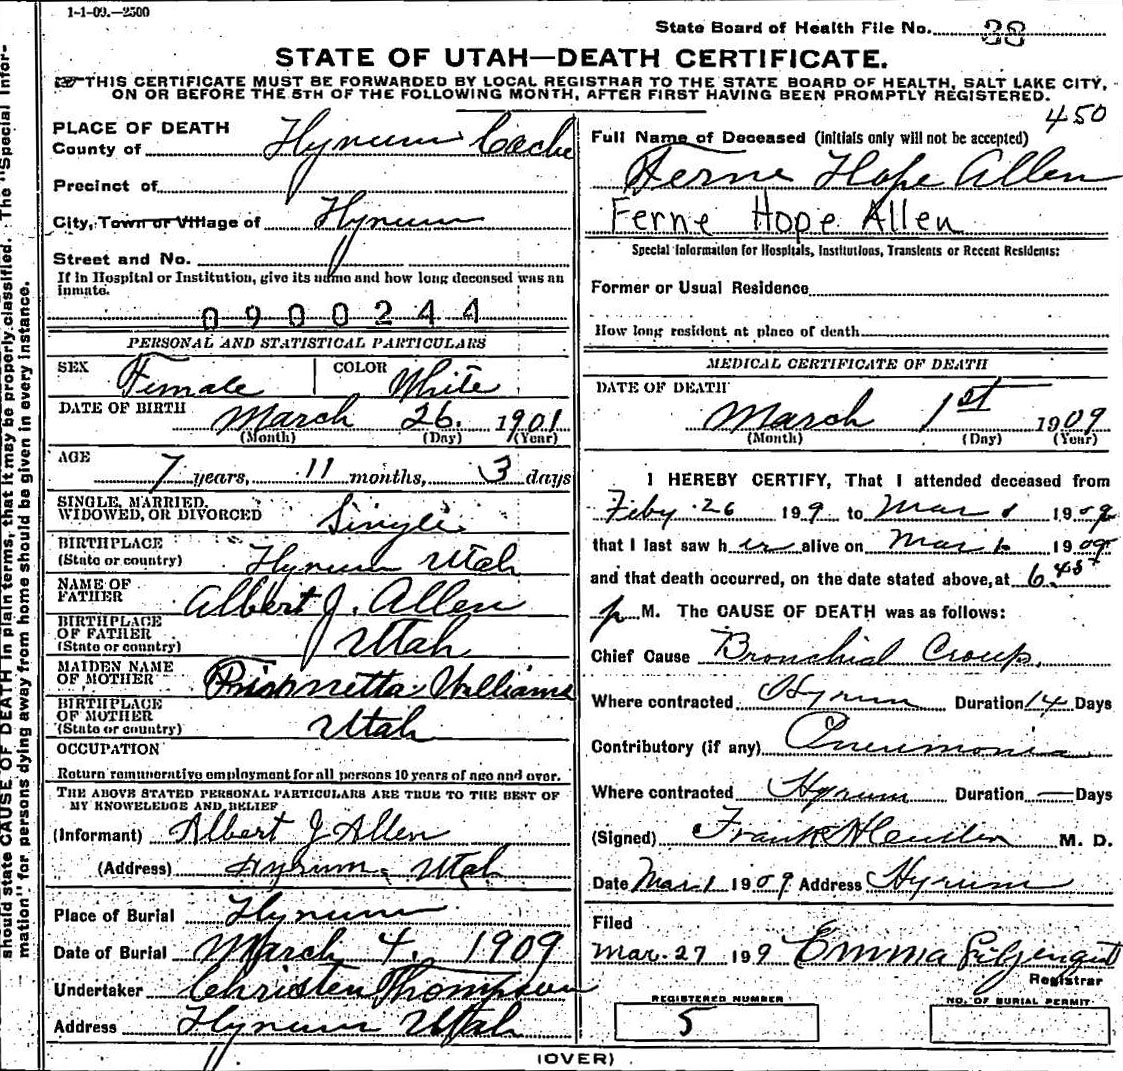 1-1-09.—2500
State Board of Health File No. 38
STATE OF UTAH—DEATH CERTIFICATE.
THIS CERTIFICATE MUST BE FORWARDED BY LOCAL REGISTRAR TO THE STATE BOARD OF HEALTH, SALT LAKE CITY,
ON OR BEFORE THE 5TH OF THE FOLLOWING MONTH, AFTER FIRST HAVING BEEN PROMPTLY REGISTERED.
450
PLACE OF DEATH
County of Hyrum Cache
Precinct of
City, Town or Village of Hyrum
Street and No.
If in Hospital or Institution, give its name and how long deceased was an
inmate.
0900244
PERSONAL AND STATISTICAL PARTICULARS
SEX Female COLOR White
DATE OF BIRTH March 26. 1901
(Month) (Day) (Year)
AGE
7 years, 11 months, 3 days
SINGLE, MARRIED,
WIDOWED, OR DIVORCED Single
BIRTHPLACE
(State or country) Hyrum Utah
NAME OF
FATHER Albert J. Allen
BIRTHPLACE
OF FATHER
(State or country) Utah
MAIDEN NAME
OF MOTHER Williams
BIRTHPLACE
OF MOTHER
(State or country) Utah
OCCUPATION
Return remunerative employment for all persons 10 years of age and over.
THE ABOVE STATED PERSONAL PARTICULARS ARE TRUE TO THE BEST OF
MY KNOWELEDGE AND BELIEF
(Informant) Albert J Allen
(Address) Hyrum, Utah
Place of Burial Hyrum
Date of Burial March 4. 1909
Undertaker Christen Thompson
Address Hyrum Utah
Full Name of Deceased (initials only will not be accepted)
Ferne Hope Allen
Ferne Hope Allen
Special Information for Hospitals, Institutions, Transients or Recent Residents:
Former or Usual Residence
How long resident at place of death
MEDICAL CERTIFICATE OF DEATH
DATE OF DEATH
March 1st 1909
(Month) (Day) (Year)
I HEREBY CERTIFY, That I attended deceased from
Feby 26 199 to Mar 1 1909
that I last saw her alive on Mar 1 1909
and that death occurred, on the date stated above, at 6.45
p M. The CAUSE OF DEATH was as follows:
Chief Cause Bronchial Croup.
Where contracted Hyrum Duration 14 Days
Contributory (if any) Pneumonia
Where contracted Hyrum Duration — Days
(Signed) Frank M. D.
Date Mar 1 1909 Address Hyrum
Filed
Mar. 27 199 Emma
Registrar
REGISTERED NUMBER
5
NO. OF BURIAL PERMIT
(OVER)
should state CAUSE OF DEATH in plain terms, that it may be properly classified. The "Special Infor-
mation" for persons dying away from home should be given in every instance.